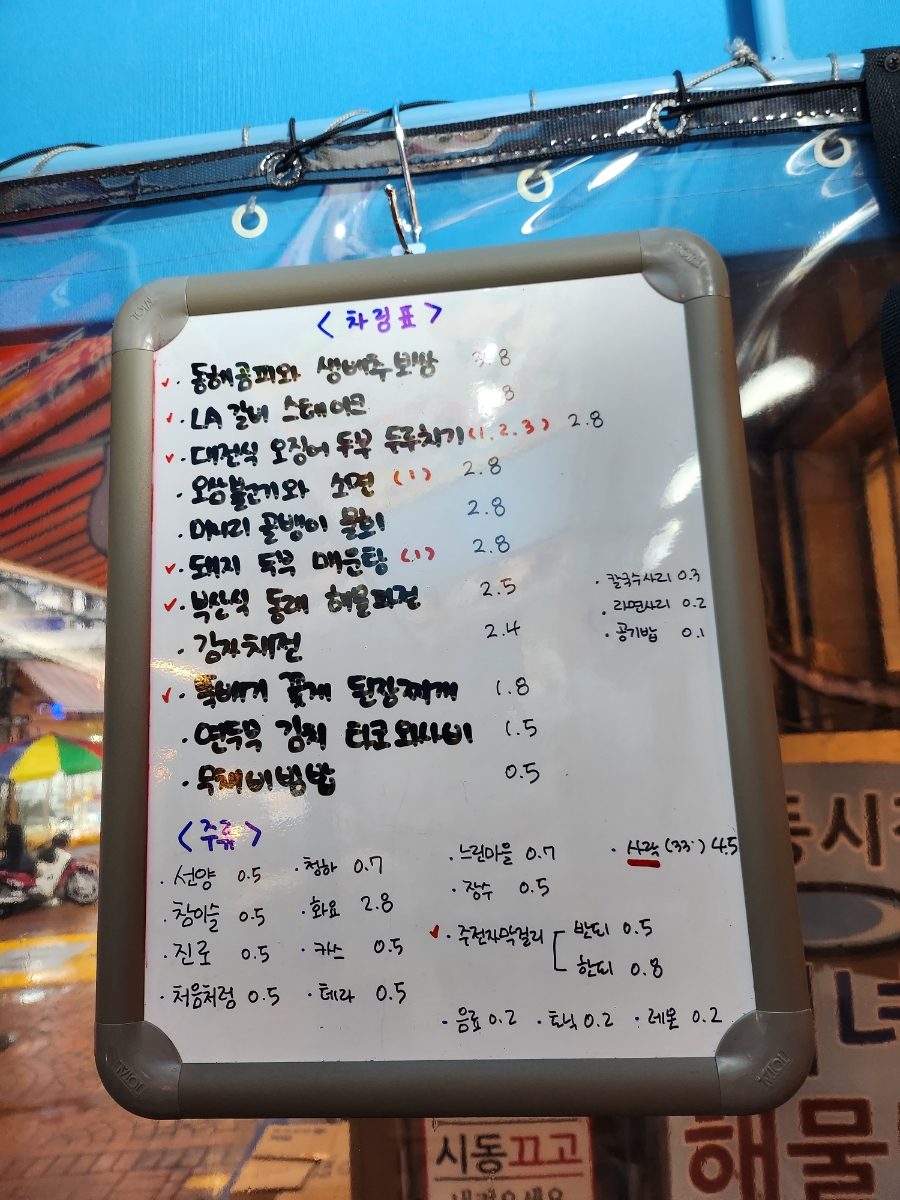 <차림표>
· 동해곰피와 생배추보쌈 3.8
· LA 갈비 스테이크 8
· 대전식 오징어 두부 두루치기 (1.2.3) 2.8
· 오삼불고기와 소면 (1) 2.8
· 마시리 골뱅이 물회 2.8
· 돼지 두부 매운탕 (1) 2.8
· 부산식 동래 해물파전 2.5
· 감자채전 2.4
· 뚝배기 꽃게 된장찌개 1.8
· 연두부 김치 타코와사비 1.5
· 무채비빔밥 0.5
· 칼국수사리 0.3
· 라면사리 0.2
· 공기밥 0.1
<주류>
· 선양 0.5
· 참이슬 0.5
· 진로 0.5
· 처음처럼 0.5
· 청하 0.7
· 화요 2.8
· 카스 0.5
· 테라 0.5
· 느린마을 0.7
· 장수 0.5
· 주전자막걸리
반되 0.5
한되 0.8
· 사락 (33˚) 4.5
· 음료 0.2 · 토닉 0.2 · 레몬 0.2
동시
녀
해물
시동끄고
TOTAL